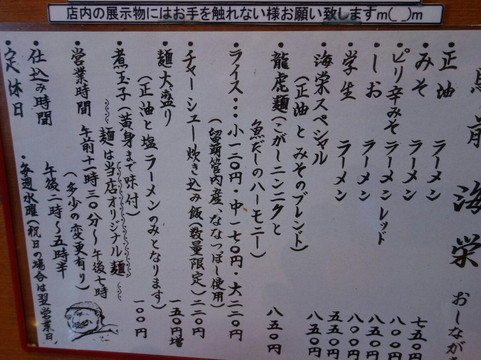 店内の展示物にはお手を触れない様お願い致しますm(_ _)m
前 海栄 おしなが
・正油 ラーメン 七五〇
・みそ ラーメン 八〇〇
・ピリ辛みそ ラーメンレッド
・しお ラーメン
・学生 ラーメン
・海栄スペシャル 八五〇円
(正油とみそのブレンド)
・龍虎麺(こがしニンニクと
魚だしのハーモニー) 八五〇円
・ライス・・・小一二〇円・中一七〇円・大二二〇円
(留萌管内産「ななつぼし」使用)
・チャーシュー炊き込み飯(数量限定)二二〇円
・麺大盛り 一五〇円増
(正油と塩ラーメンのみとなります)
・煮玉子(黄身まで味付) 一〇〇円
麺は当店オリジナル麺
・営業時間 午前十一時三〇分〜午後七時
(多少の変更有り)
・仕込み時間 午後二時〜五時半
・定休日 ・毎週水曜(祝日の場合は翌営業日